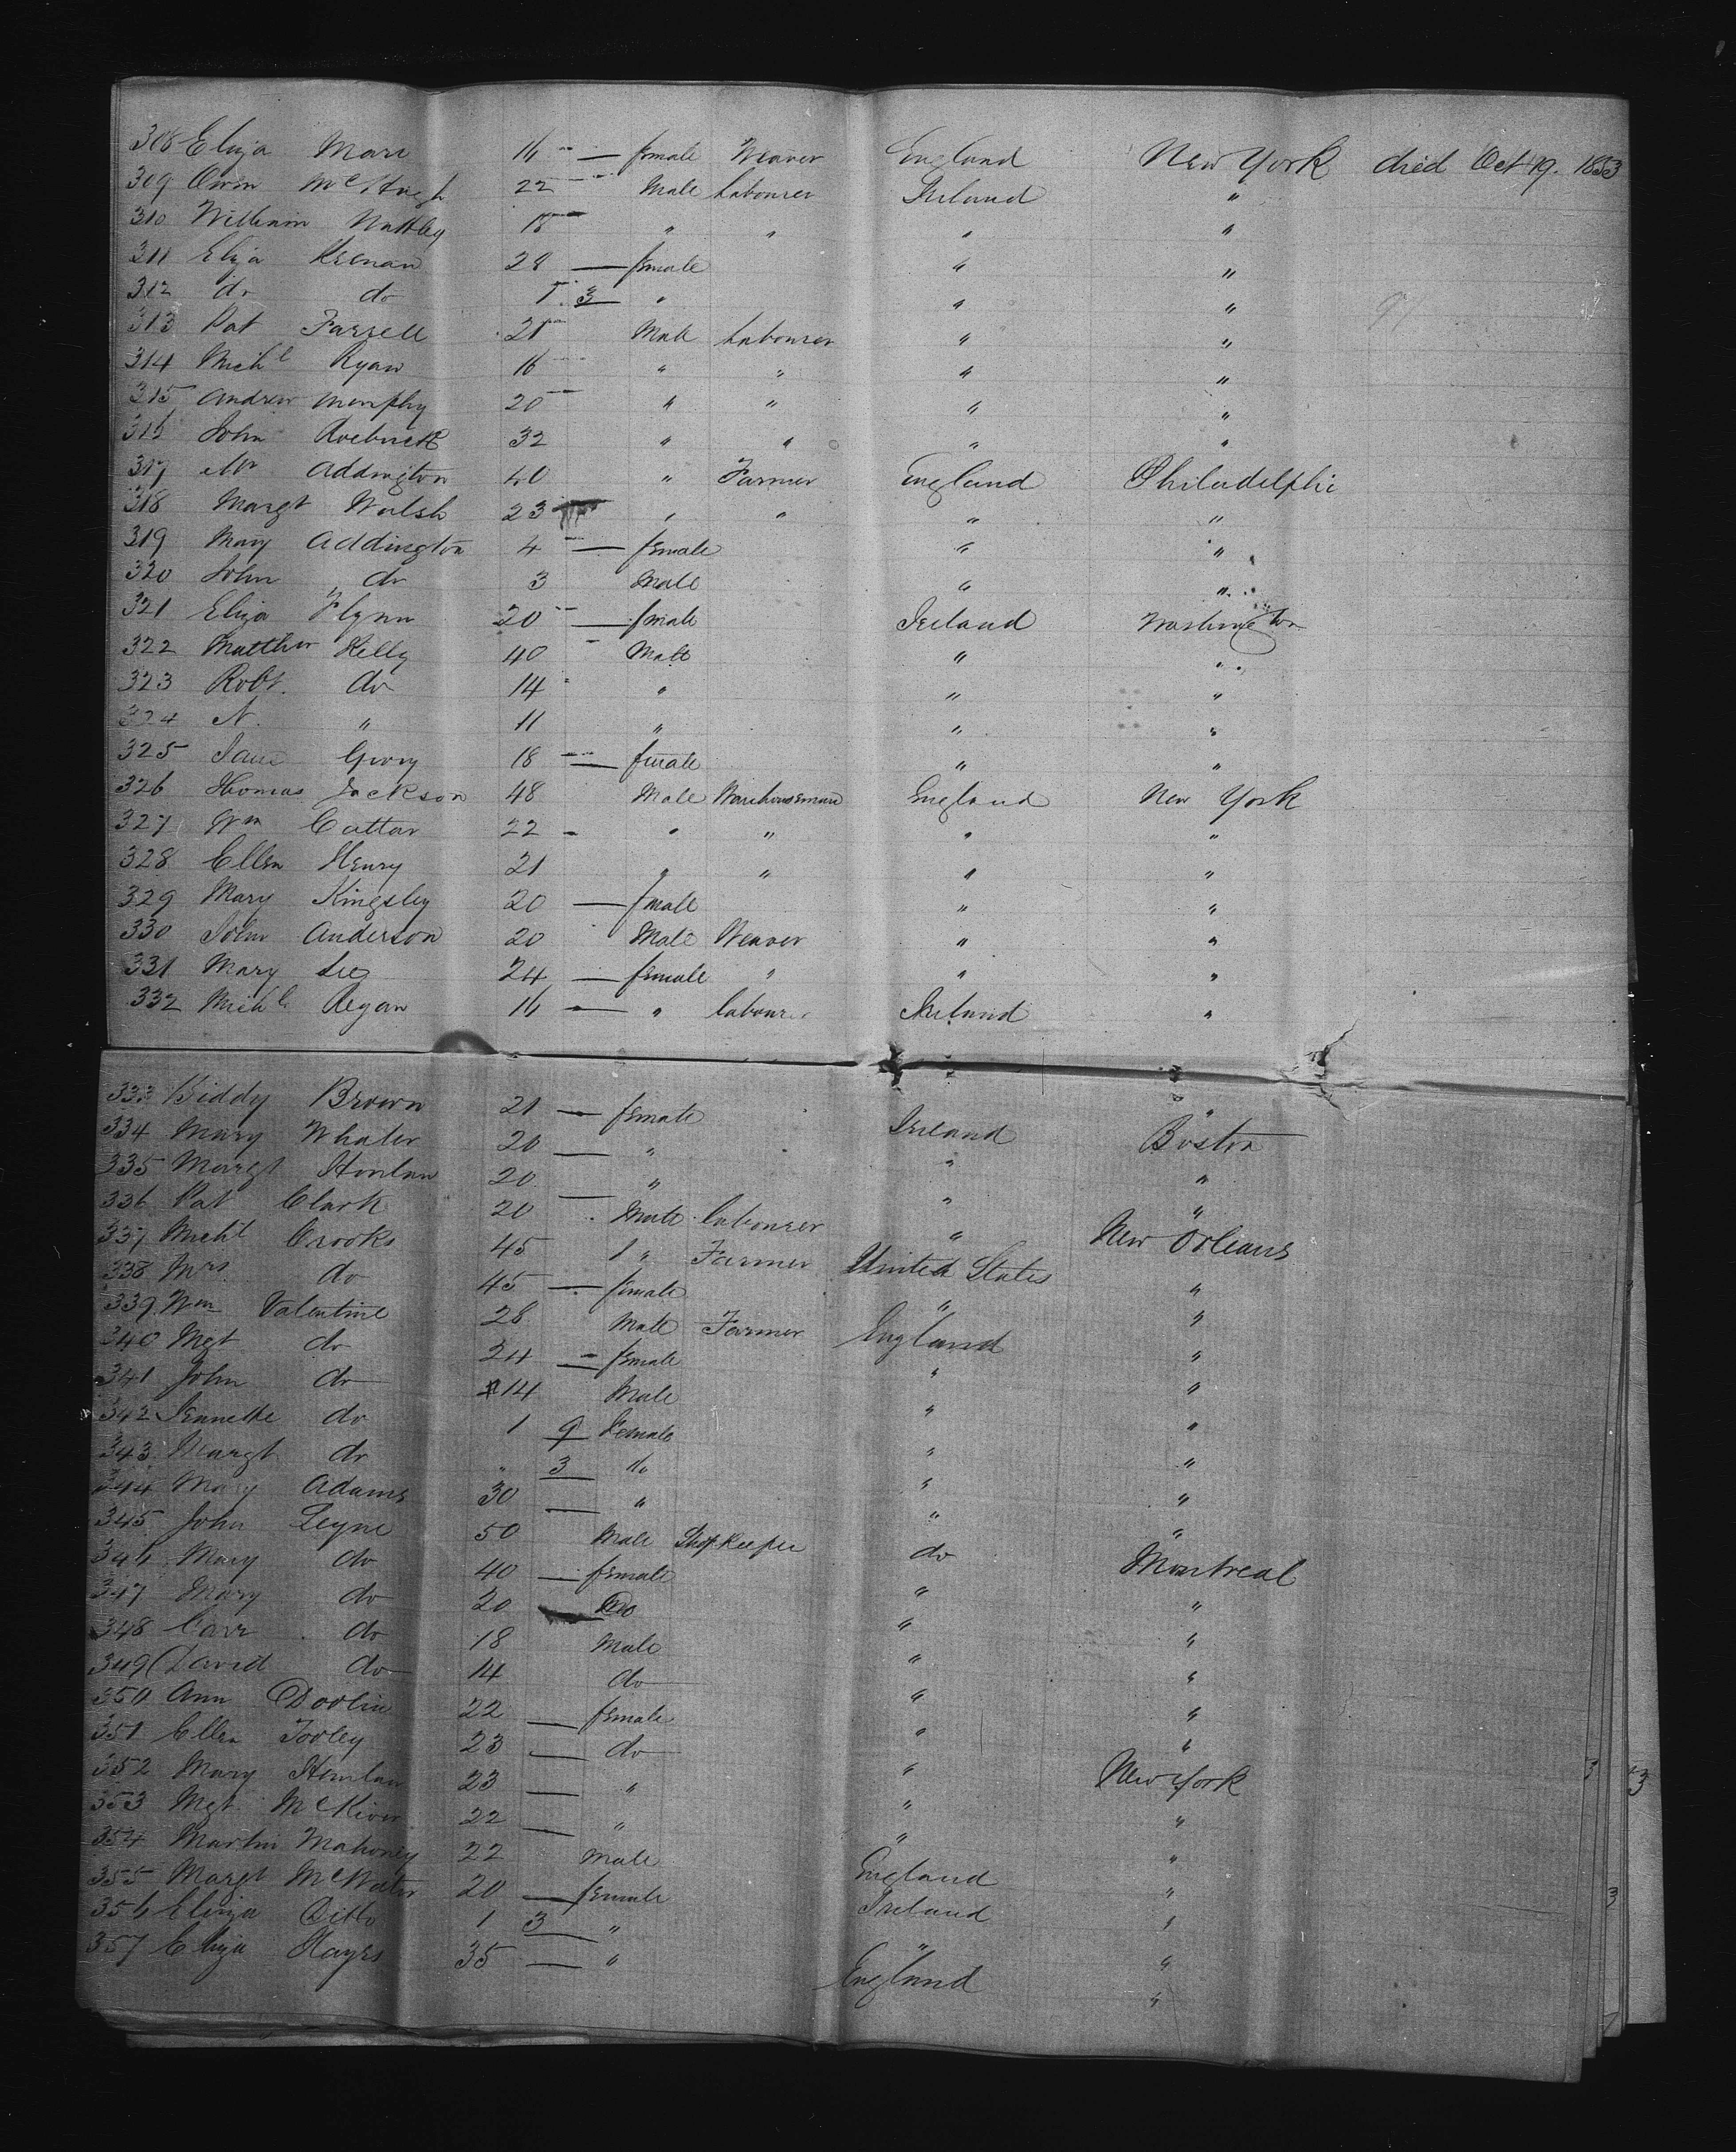 308 Eliza Mare 16 — female Weaver England New York died Oct 19. 1853
309 Owen McHugh 22 Male Labourer Ireland "
310 William Nattley 18 " " " "
311 Eliza Keenan 28 — female " "
312 do do 1 3 " " "
313 Pat Farrell 21 Male Labourer " "
314 Michl Ryan 16 " " " "
315 Andrew Murphy 20 " " " "
316 John Roebuck 32 " " " "
317 Mr Addington 40 " Farmer England Philadelphi
318 Margt Walsh 23 " " " "
319 Mary Addington 4 — female " "
320 John do 3 Male " "
321 Eliza Flynn 20 — female Ireland Washington
322 Matthew Kelly 40 Male " "
323 Robt. do 14 " " "
324 N. " 11 " " "
325 Jane 18 — female " "
326 Thomas Jackson 48 Male Warehouseman England New York
327 Wm Cattar 22 " " " "
328 Ellen Henry 21 " " " "
329 Mary Kingsley 20 — female " "
330 John Anderson 20 Male Weaver " "
331 Mary Lee 24 — female " " "
332 Michl Regan 16 — " labourer Ireland "
333 Biddy Brown 21 — female Ireland "
334 Mary Whaler 20 — " " Boston
335 Margt Honlan 20 — " " "
336 Pat Clark 20 Male labourer " "
337 Michl Crooks 45 " Farmer United States New Orleans
338 Mrs do 45 — female " "
339 Wm Valentine 28 Male Farmer England "
340 Mgt do 24 — female " "
341 John do 14 Male " "
342 Jennette do 1 9 Female " "
343 Margt do " 3 do " "
344 Mary Adams 30 — " " "
345 John Leyne 50 Male Shopkeeper do "
346 Mary do 40 — female " Montreal
347 Mary do 20 — Do " "
348 Carr do 18 Male " "
349 David do 14 do " "
350 Ann Doolin 22 — female " "
351 Ellen Tooley 23 — do " "
352 Mary Honlan 23 — " " New York
353 Mgt. McKiver 22 — " " "
354 Martin Mahoney 22 Male England "
355 Margt McWater 20 — female Ireland "
356 Eliza Ditto 1 3 " " "
357 Eliza Hayes 35 — " England "